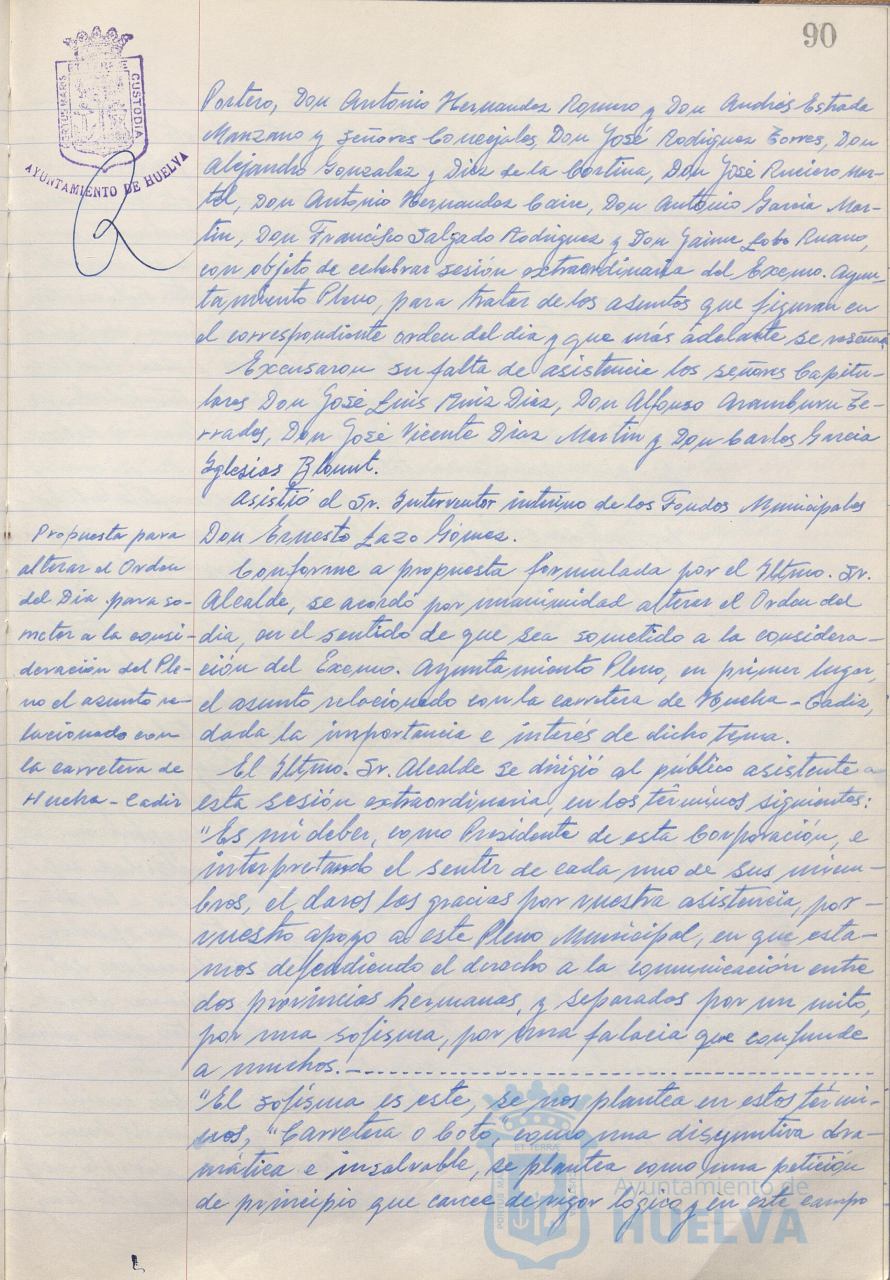 90
PORTUS MARIS
ET TERRÆ
CUSTODIA
AYUNTAMIENTO DE HUELVA
Portero, Don Antonio Hernandez Romero y Don Andrés Estrada
Manzano y señores Concejales, Don José Rodriguez Torres, Don
Alejandro Gonzalez y Diez de la Cortina, Don José Ruciero Mar-
tel, Don Antonio Hernandez Caire, Don Antonio Garcia Mar-
tin, Don Francisco Salgado Rodriguez y Don Jaime Lobo Ruano,
con objeto de celebrar sesión extraordinaria del Excmo. Ayun-
tamiento Pleno, para tratar de los asuntos que figuran en
el correspondiente orden del dia y que más adelante se reseña
Excusaron su falta de asistencia los señores Capitu-
lares Don José Luis Ruiz Diaz, Don Alfonso Aramburu Te-
rrados, Don José Vicente Diaz Martin y Don Carlos Garcia
Iglesias Blount.
Asistió el Sr. Interventor interino de los Fondos Municipales
Don Ernesto Lazo Gómez.
Propuesta para
alterar el Orden
del Dia para so-
meter a la consi-
deración del Ple-
no el asunto re-
lacionado con
la carretera de
Huelva-Cadiz
Conforme a propuesta formulada por el Iltmo. Sr.
Alcalde, se acordó por unanimidad alterar el Orden del
dia, en el sentido de que sea sometido a la considera-
ción del Excmo. Ayuntamiento Pleno, en primer lugar,
el asunto relacionado con la carretera de Huelva-Cadiz,
dada la importancia e interés de dicho tema.
El Iltmo. Sr. Alcalde se dirigió al público asistente a
esta sesión extraordinaria, en los términos siguientes:
"Es mi deber, como Presidente de esta Corporación, e
interpretando el sentir de cada uno de sus miem-
bros, el daros las gracias por vuestra asistencia, por-
vuestro apoyo a este Pleno Municipal, en que esta-
mos defendiendo el derecho a la comunicación entre
dos provincias hermanas, y separados por un mito,
por una sofisma, por una falacia que confunde
a muchos.-
"El sofisma es este, se nos plantea en estos térmi-
nos, "Carretera o Coto," como una disyuntiva dra-
mática e insalvable, se plantea como una petición
de principio que carece de rigor lógico y en este campo
PORTUS MARIS
ET TERRÆ
Ayuntamiento de
HUELVA